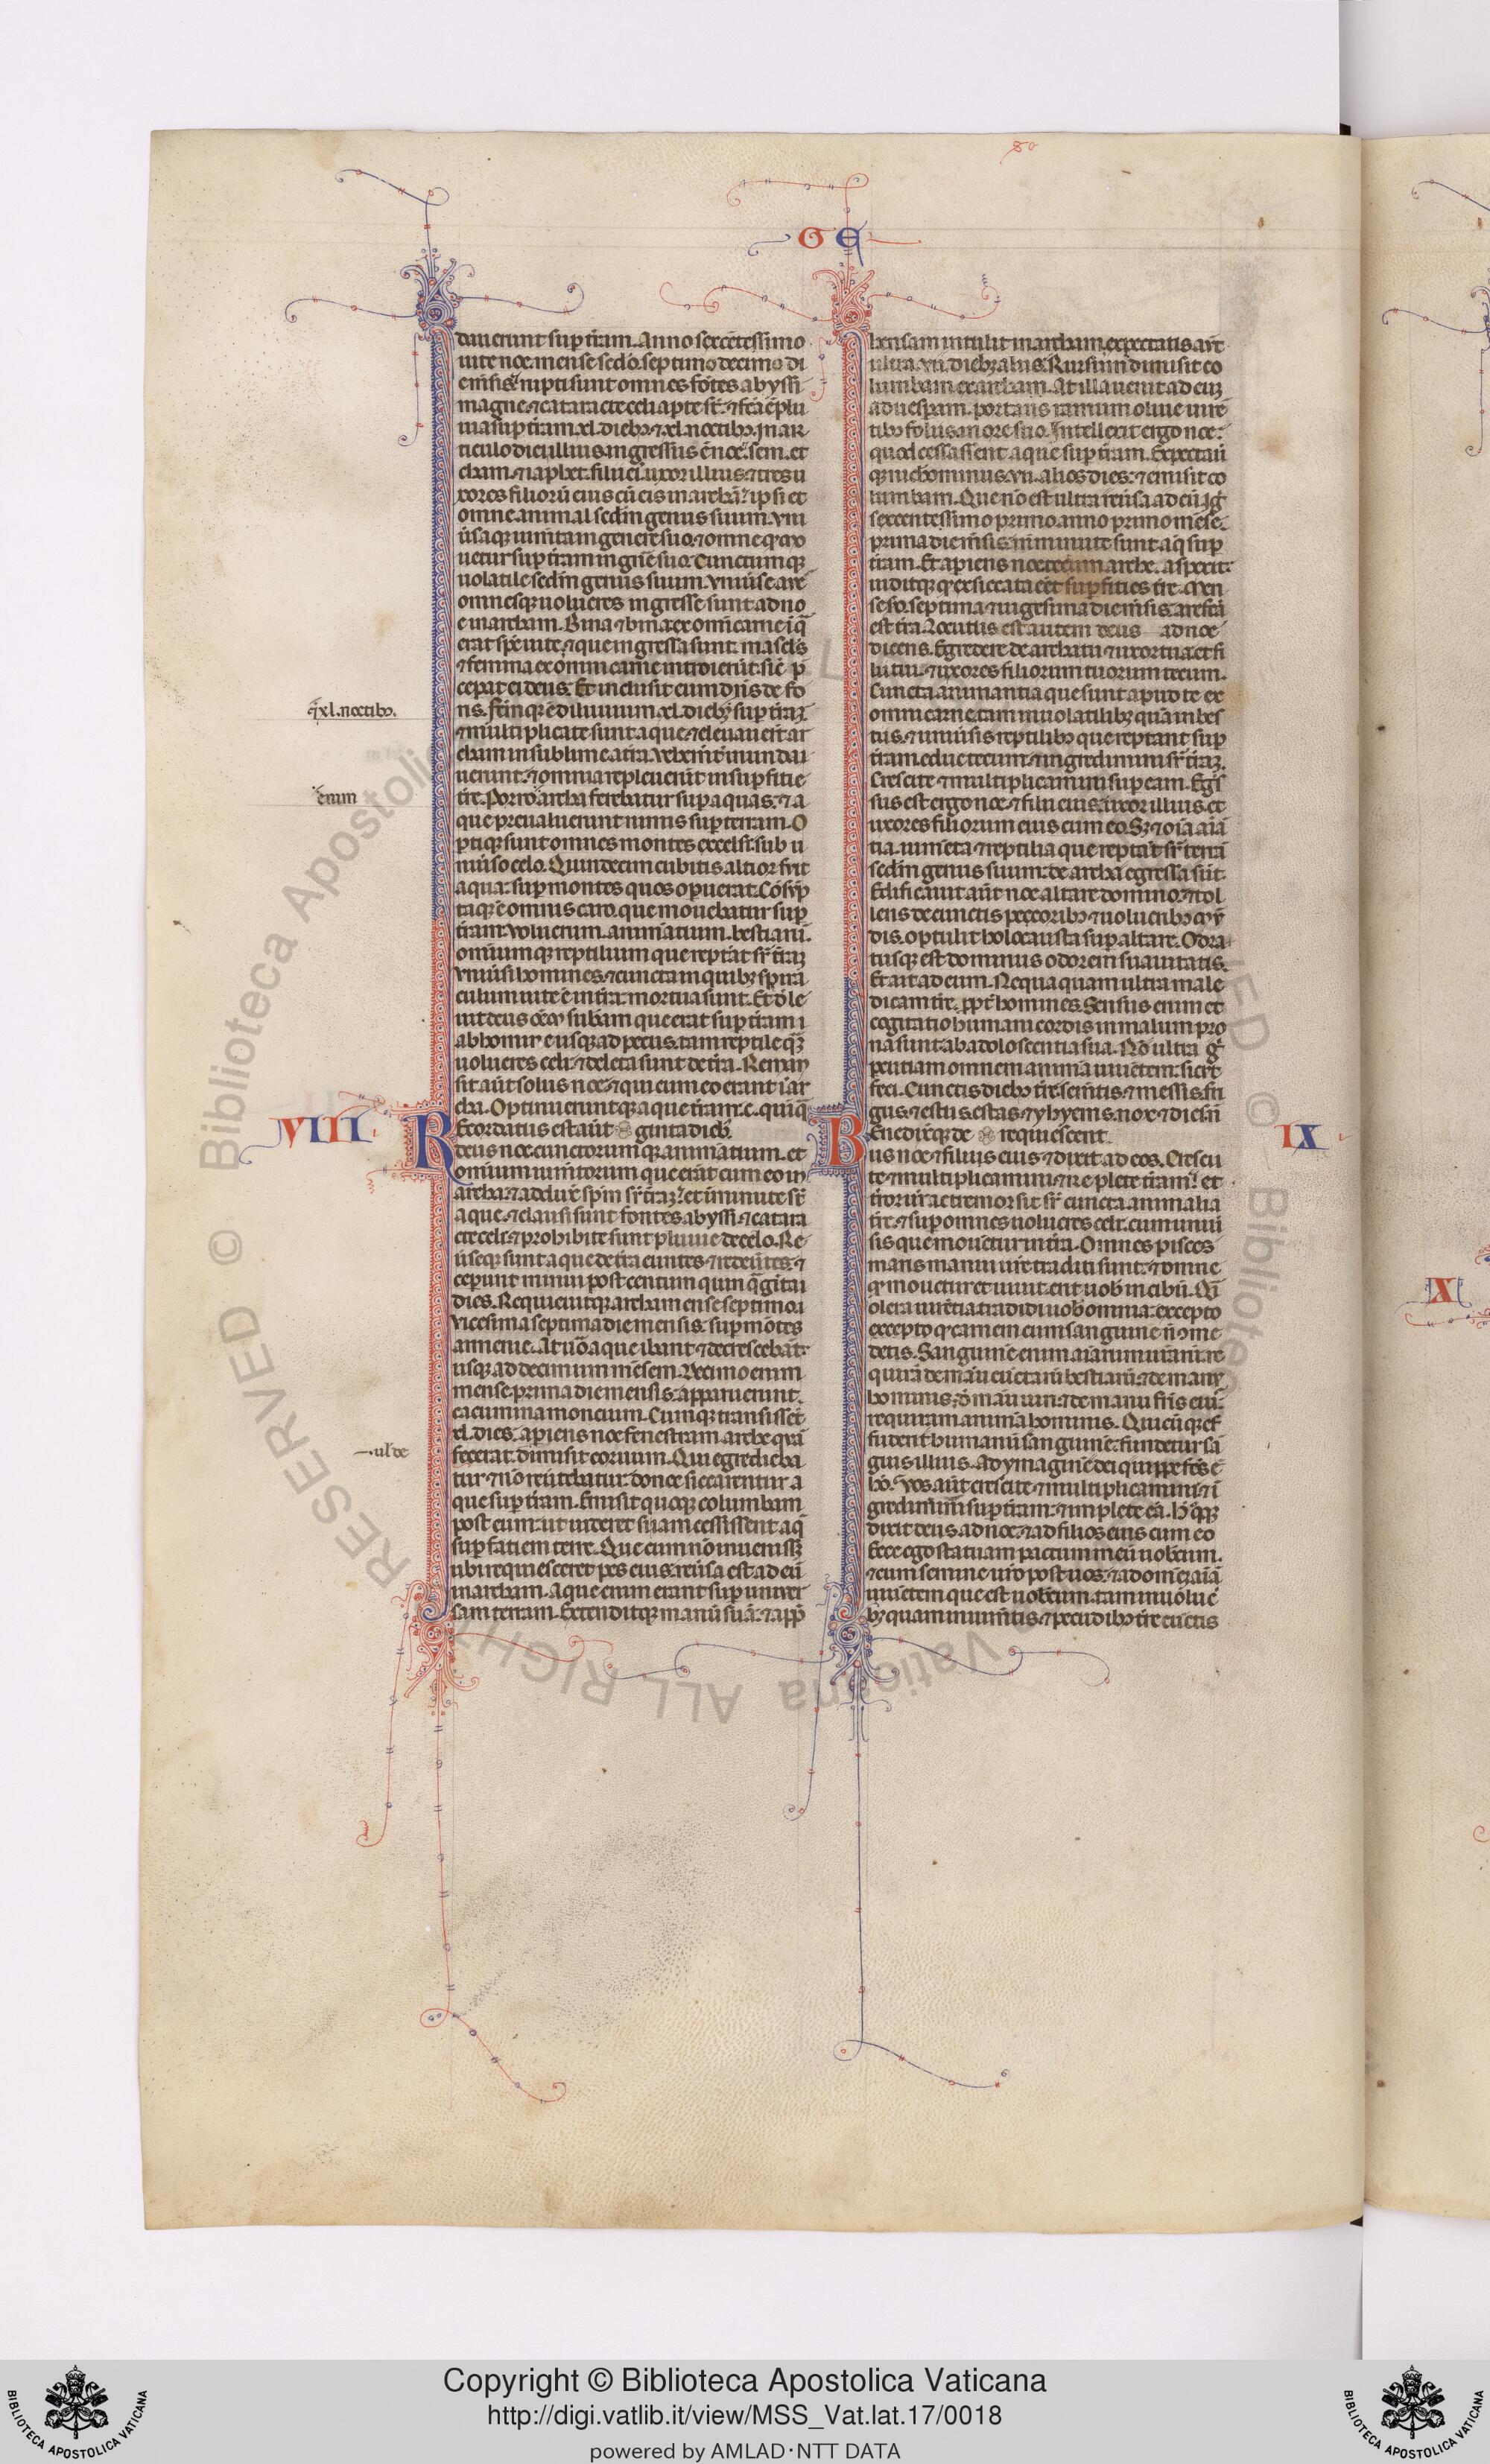 GE
dauerunt sup̱ t̄ram. Anno sexcētessimo
uite noe. mense sec̄do. septimo decimo di
e m̄sis: rupti sunt omnes fōtes abyssi
magne. ⁊ cataracte celi ap̱te sṫ. ⁊ fc̄a ē plu
uia sup̱ t̄ram .xl. dieb₃ ⁊ .xl. noctib₃. In ar
ticulo diei illius ingressus ē noe. sem. et
cham. ⁊ iaphet. filii ei. uxor illius. ⁊ tres u
xores filiorū eius cū eis in archā: ipsi et
omne animal sedm genus suum. vni
ūsaq₃ iumēta in genere suo. ⁊ omne q̇ mo
uetur sup̱ t̄ram in gn̄e suo. Cunctumq₃
uolatile sedm genus suum. vniūse aue
omnesq₃ uolucres ingresse sunt ad no
e in archam. Bina ⁊ bina ex omni carne ī q̄
erat sp̄c uite. ⁊ que ingressa sunt. mascl̄s
⁊ femina ex omni carne introierūt. sic̄ p̄
cepat ei deus. Et inclusit eum dn̄s de fo
q̄xl. noctib₃.
ns. fc̄m q₃ ē diluuium .xl. dieb₃ sup̱ t̄ra₃
⁊ multiplicate sunt aque. ⁊ eleuauer̄t ar
cham in sublime a t̄ra. vehem̄t̄ inundai
uerunt. ⁊ omnia repleuer̄t in sup̱ficie
enim
t̄re. Porro archa ferebatur sup̱ aquas. ⁊ a
que preualuerunt nimis sup̱ terram. O
p̱tiq₃ sunt omnes montes excelsi. sub u
niūso celo. Quindecim cubitis altior fuit
aqua. sup̱ montes quos op̱uerat. Cōsūp
taq₃ ē omnis caro. que mouebatur sup̱
t̄ram. volucrum. animātium. bestiarū.
omniumq₃ reptilium que reptāt sr̄ t̄ra₃
vniūsi homines. ⁊ cuncta in quib₃ spira
culum uite ē in t̄ra. mortua sunt. Et d̄le
uit deus ōem subām que erat sup̱ t̄ram
ab homine usq₃ ad pecus. tam reptile q̄₃
uolucres celi. ⁊ deleta sunt de t̄ra. Reman
sit aūt solus noe. ⁊ qui cum eo erant ī ar
cha. Optinuerunt q₃ aque t̄ram .c. quīq̄
ginta dieb₃
VIII
Recordatus est aūt
deus noe. cunctorumq₃ animātium. et
omnium iumtorum que erāt cum eo in
archa. ⁊ adduxit sp̄m sr̄ t̄ra₃. et iminute sṫ
aque. ⁊ clausi sunt fontes abyssi. ⁊ catara
cte celi. ⁊ prohibite sunt pluuie de celo. Re
ūseq₃ sunt aque de t̄ra euntes. ⁊ redeūtes. ⁊
ceperunt minui post centum quinq̄ginta
dies. Requieuitq₃ archa mense septimo.
vicesima septima die mensis. sup̱ mōtes
armenie. At uō aque ibant ⁊ decrescebāt.
usq₃ ad decimum mēsem. Decimo enim
mense. prima die mensis. apparuerunt
cacumina moncium. Cumq₃ transissēt
.xl. dies. apiens noe fenestram arche quā
ul' de
fecerat. dimisit coruum. Qui egredieba
tur. ⁊ nō reūtebatur. donec siccarentur a
que sup̱ t̄ram. Emisit quoq₃ columbam
post eum. ut uideret si iam cessissent aq̄
sup̱ faciem terre. Que cum nō inuenisset
ubi requiesceret pes eius. reūsa est ad eū
in archam. Aque enim erant sup̱ uniuer
sam terram. Extenditq₃ manū suā. ⁊ app̄
hensam intulit in archam. expectatis aūt
ultra .vii. dieb₃ aliis. Rursum dimisit co
lumbam ex archam. At illa uenit ad eu₃
ad uesp̱am. portans ramum oliue uire
tib₃ foliis in ore suo. Intellexit ergo noe.
quod cessassent aque sup̱ t̄ram. Expectaui
q₃ nichominus .vii. alios dies. ⁊ emisit co
lumbam. Que nō est ultra reūsa ad eū. Ig̃
sexcentessimo primo anno primo mēse.
prima die m̄sis. īminute sunt aq̄ sup̱
t̄ram. Et apiens noe tectum arche. aspexit.
uiditq₃ q̇ exsiccata eēt sup̱ficies t̄re. Men
se sc̄o. septima ⁊ uigesima die m̄sis. arefc̄a
est t̄ra. Locutus est autem deus ad noe
dicens. Egredere de archa tu ⁊ uxor tua. et fi
lii tui. ⁊ uxores filiorum tuorum tecum.
Cuncta animantia que sunt apud te ex
omni carne. tam in uolatilib₃ quam in bes
tiis. ⁊ uniūsis reptilib₃ que reptant sup̱
t̄ram. educ tecum. ⁊ ingredimini sr̄ t̄ra₃.
Crescite ⁊ multiplicamini sup̱ eam. Egr̄
sus est ergo noe. ⁊ filii eius. uxor illius. et
uxores filiorum eius cum eo. S₃ ⁊ oīa aīā
tia. iumēta ⁊ reptilia que reptāt sr̄ terrā
sedm genus suum. de archa egressa sūt.
Edificauit aūt noe altare domino. ⁊ tol
lens de cunctis peccorib₃ ⁊ uolucrib₃ mū
dis. optulit holocausta sup̱ altare. Odra
tusq₃ est dominus odorem suauitatis.
Et ait ad eum. Nequaquam ultra male
dicam t̄re. pp̄t̄ homines. Sensus enim et
cogitatio humani cordis in malum pro
na sunt. ab adoloscentia sua. Nō ultra g̃
percutiam omnem animā uiuētem. sicut
feci. Cunctis dieb₃ t̄re. sem̄tis. ⁊ messis. fri
gus. ⁊ estus. estas. ⁊ yhyems. nox. ⁊ dies. n̄
requiescent.
IX
Benedixitq₃ de
us noe ⁊ filiis eius. ⁊ dixit ad eos. Cresci
te ⁊ multiplicamini. ⁊ replete t̄ram. et
t̄ror ur̄ ac tremor sit sr̄ cuncta animalia
t̄re. ⁊ sup̱ omnes uolucres celi. cum uniū
sis que mouētur in t̄ra. Omnes pisces
maris manui ur̄e traditi sunt. ⁊ omne
q̇ mouetur et uiuit. erit uob̄ in cibū. Q̄i
olera uirētia tradidi uob̄ omnia. excepto
excepto q̇ carnem cum sanguine n̄ ɔme
detis. Sanguinē enim aīarum uīarū re
quirā de manu cūctarū bestiarū. ⁊ de manu
hominis. d̄ manu uiri. ⁊ de manu fr̄is eiu.
requiram animā hominis. Quicūq₃ ef
fuderit humanū sanguinē. fundetur sā
guis illius. Ad ymaginē dei quippe fc̄s ē
hō. Vos aūt crescite ⁊ multiplicamini. ⁊ ī
gredimini sup̱ t̄ram. ⁊ implete eā. H̄ q₃
dixit deus ad noe. ⁊ ad filios eius cum eo
Ecce ego statuam pactum meū uob̄cum.
⁊ cum semine ur̄o post uos. ⁊ ad omē aīā
uiuētem que est uob̄cum. tam in uolucri
b₃ quam in iumtis. ⁊ pecudib₃ t̄re cūctis
X
Copyright © Biblioteca Apostolica Vaticana
http://digi.vatlib.it/view/MSS_Vat.lat.17/0018
powered by AMLAD·NTT DATA
BIBLIOTECA APOSTOLICA VATICANA
BIBLIOTECA APOSTOLICA VATICANA